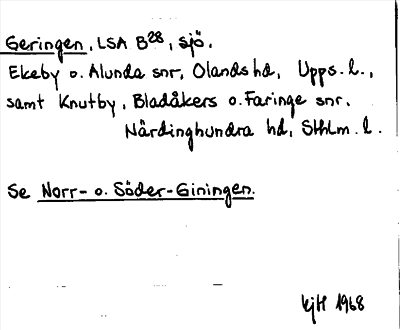 Geringen, LSA B28, sjö.
Ekeby o. Alunda snr, Olands hd, Upps. l.,
samt Knutby, Bladåkers o. Faringe snr.
Närdinghundra hd, Sthlm. l.
Se Norr- o. Söder-Giningen.
kjH 1968